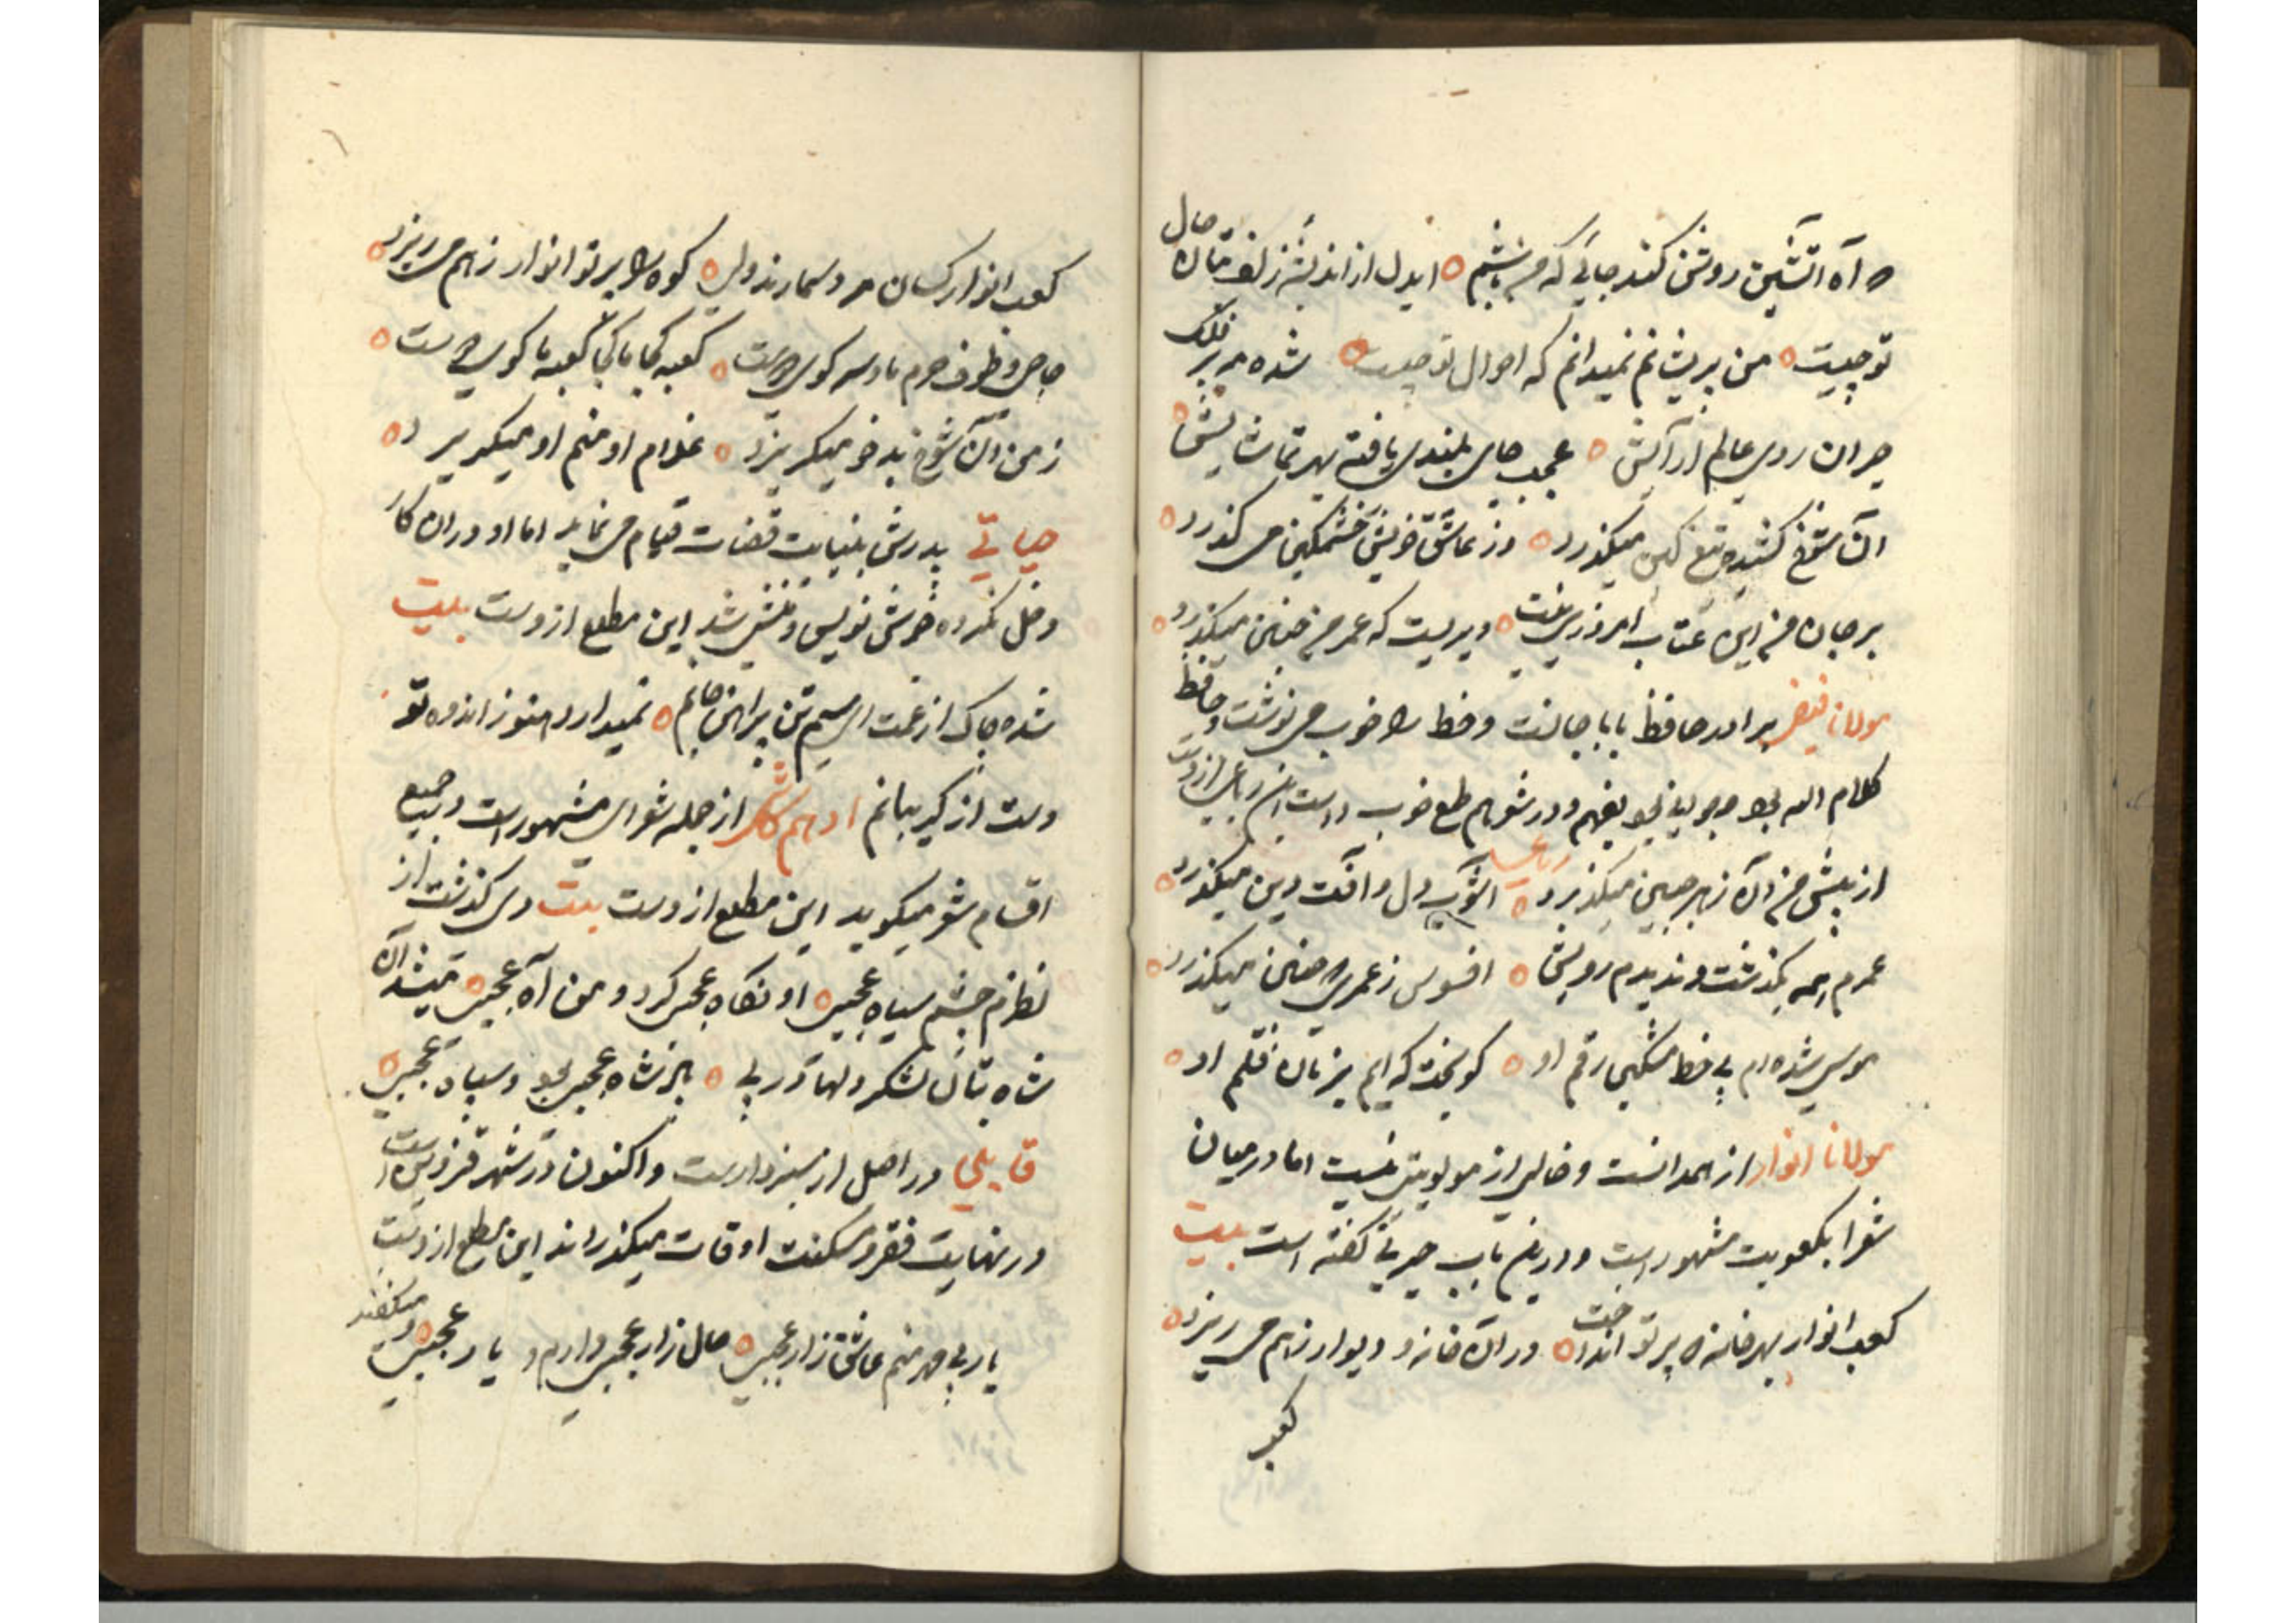 ه آه اتشین روشن کند جایی که من باشم ه ایدل از اندیشه زلف بتان حال
تو چیست ه من پریشانم نمیدانم که احوال تو چیست ه شده مه بر فلک
حیران روی عالم آرایش ه عجب جای بلندی یافته بهر تماشایش ه
آن شوخ کشیده تیغ کین میکذرد ه وز عاشق خویش خشمکین می کذرد ه
بر جان من این عتاب امروزی نیست ه دیریست که عمر من چنین میکذرد ه
مولانا فیضی برادر حافظ بابا جانست و خط را خوب می نوشت و حافظ
کلام الله بود و جوانی بود بفهم و در شعر هم طبع خوب داشت این رباعی ازوست
رباعی
از پیش من آن زهره جبین میکذرد ه آشوب دل و آفت دین میکذرد ه
عمرم همه بکذشت و ندیدم رویش ه افسوس ز عمری که چنین میکذرد ه
موسی شده ام بی خط مشکین رقم او ه کو بخت که ایم بزبان قلم او ه
مولانا انوار از همدانست و خالی از مولویتی نیست اما در میان
شعرا بکعوبیت مشهور است و درین باب چیزی گفته است بیت
کعب انوار بهر خانه که پرتو انداخت ه در آن خانه و دیوار ز هم می ریزد ه
کعب
کعب انوار کسان مرد و سم دارند ولی ه کوه را پرتو انوار ز هم می ریزد ه
حاجی و طوف حرم ما و سر کوی دوست ه کعبه کجا ما کجا کعبه ما کوی دوست ه
ز من آن شوخ بدخو میکریزد ه غلام او منم او میکریزد ه
حیاتی پدرش بنیابت قضات قیام می نماید اما او در آن کار
دخل نکرده خوش نویس و منشی شد این مطلع ازوست بیت
شده چاک از غمت ای سیم تن پیراهن جانم ه نمیدارد هنوز اندوه تو
دست از کریبانم ادهم کاشی از جمله شعرای مشهور است و جمیع
اقسام شعر میکوید این مطلع ازوست بیت دی کذشت از
نظرم چشم سیاه عجبی ه او نکاه عجبی کرد و من آه عجبی ه میشد آن
شاه بتان لشکر دلها در پی ه باز شاه عجبی بود و سپاه عجبی ه
قابلی در اصل از سبزوارست و اکنون در شهر قزوین است
در نهایت فقر و مسکنت اوقات میکذراند این مطلع ازوست
یار بی مهر منم عاشق زار عجبی ه حال زار عجبی دارم و یار عجبی ه